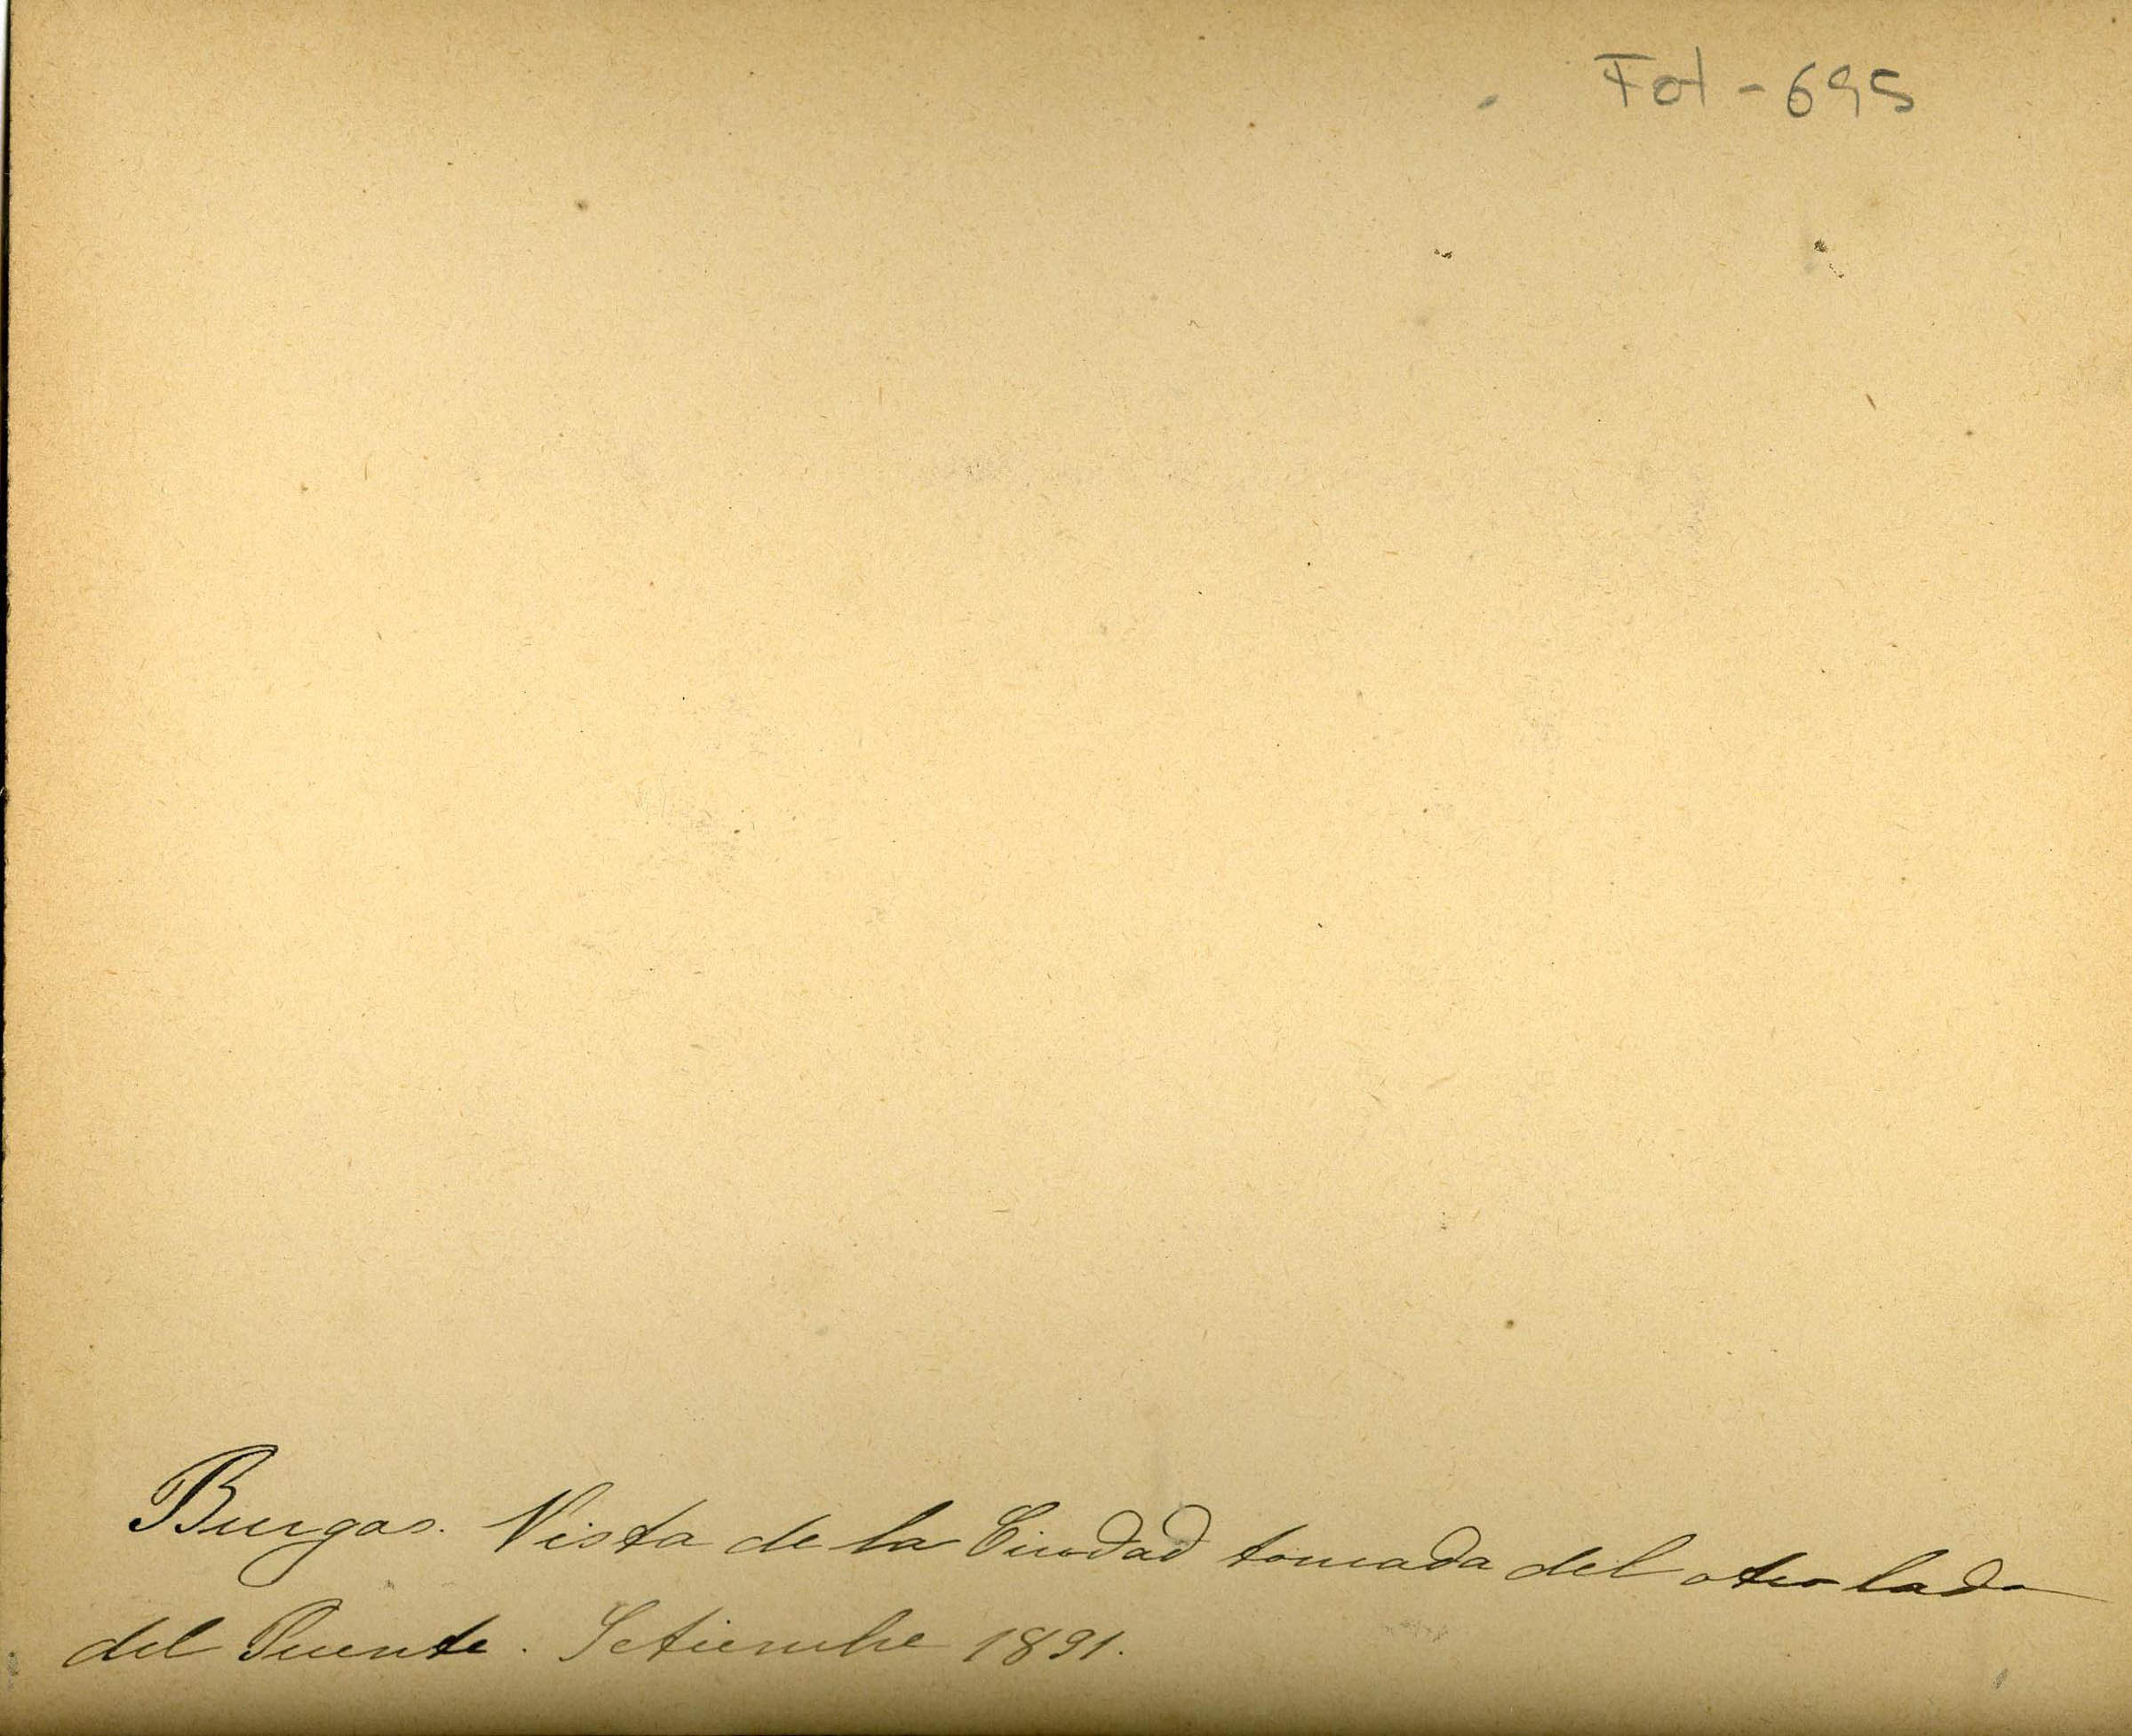 Fot-695
Burgos. Vista de la Ciudad tomada del otro lado
del Puente. Setiembre 1891.